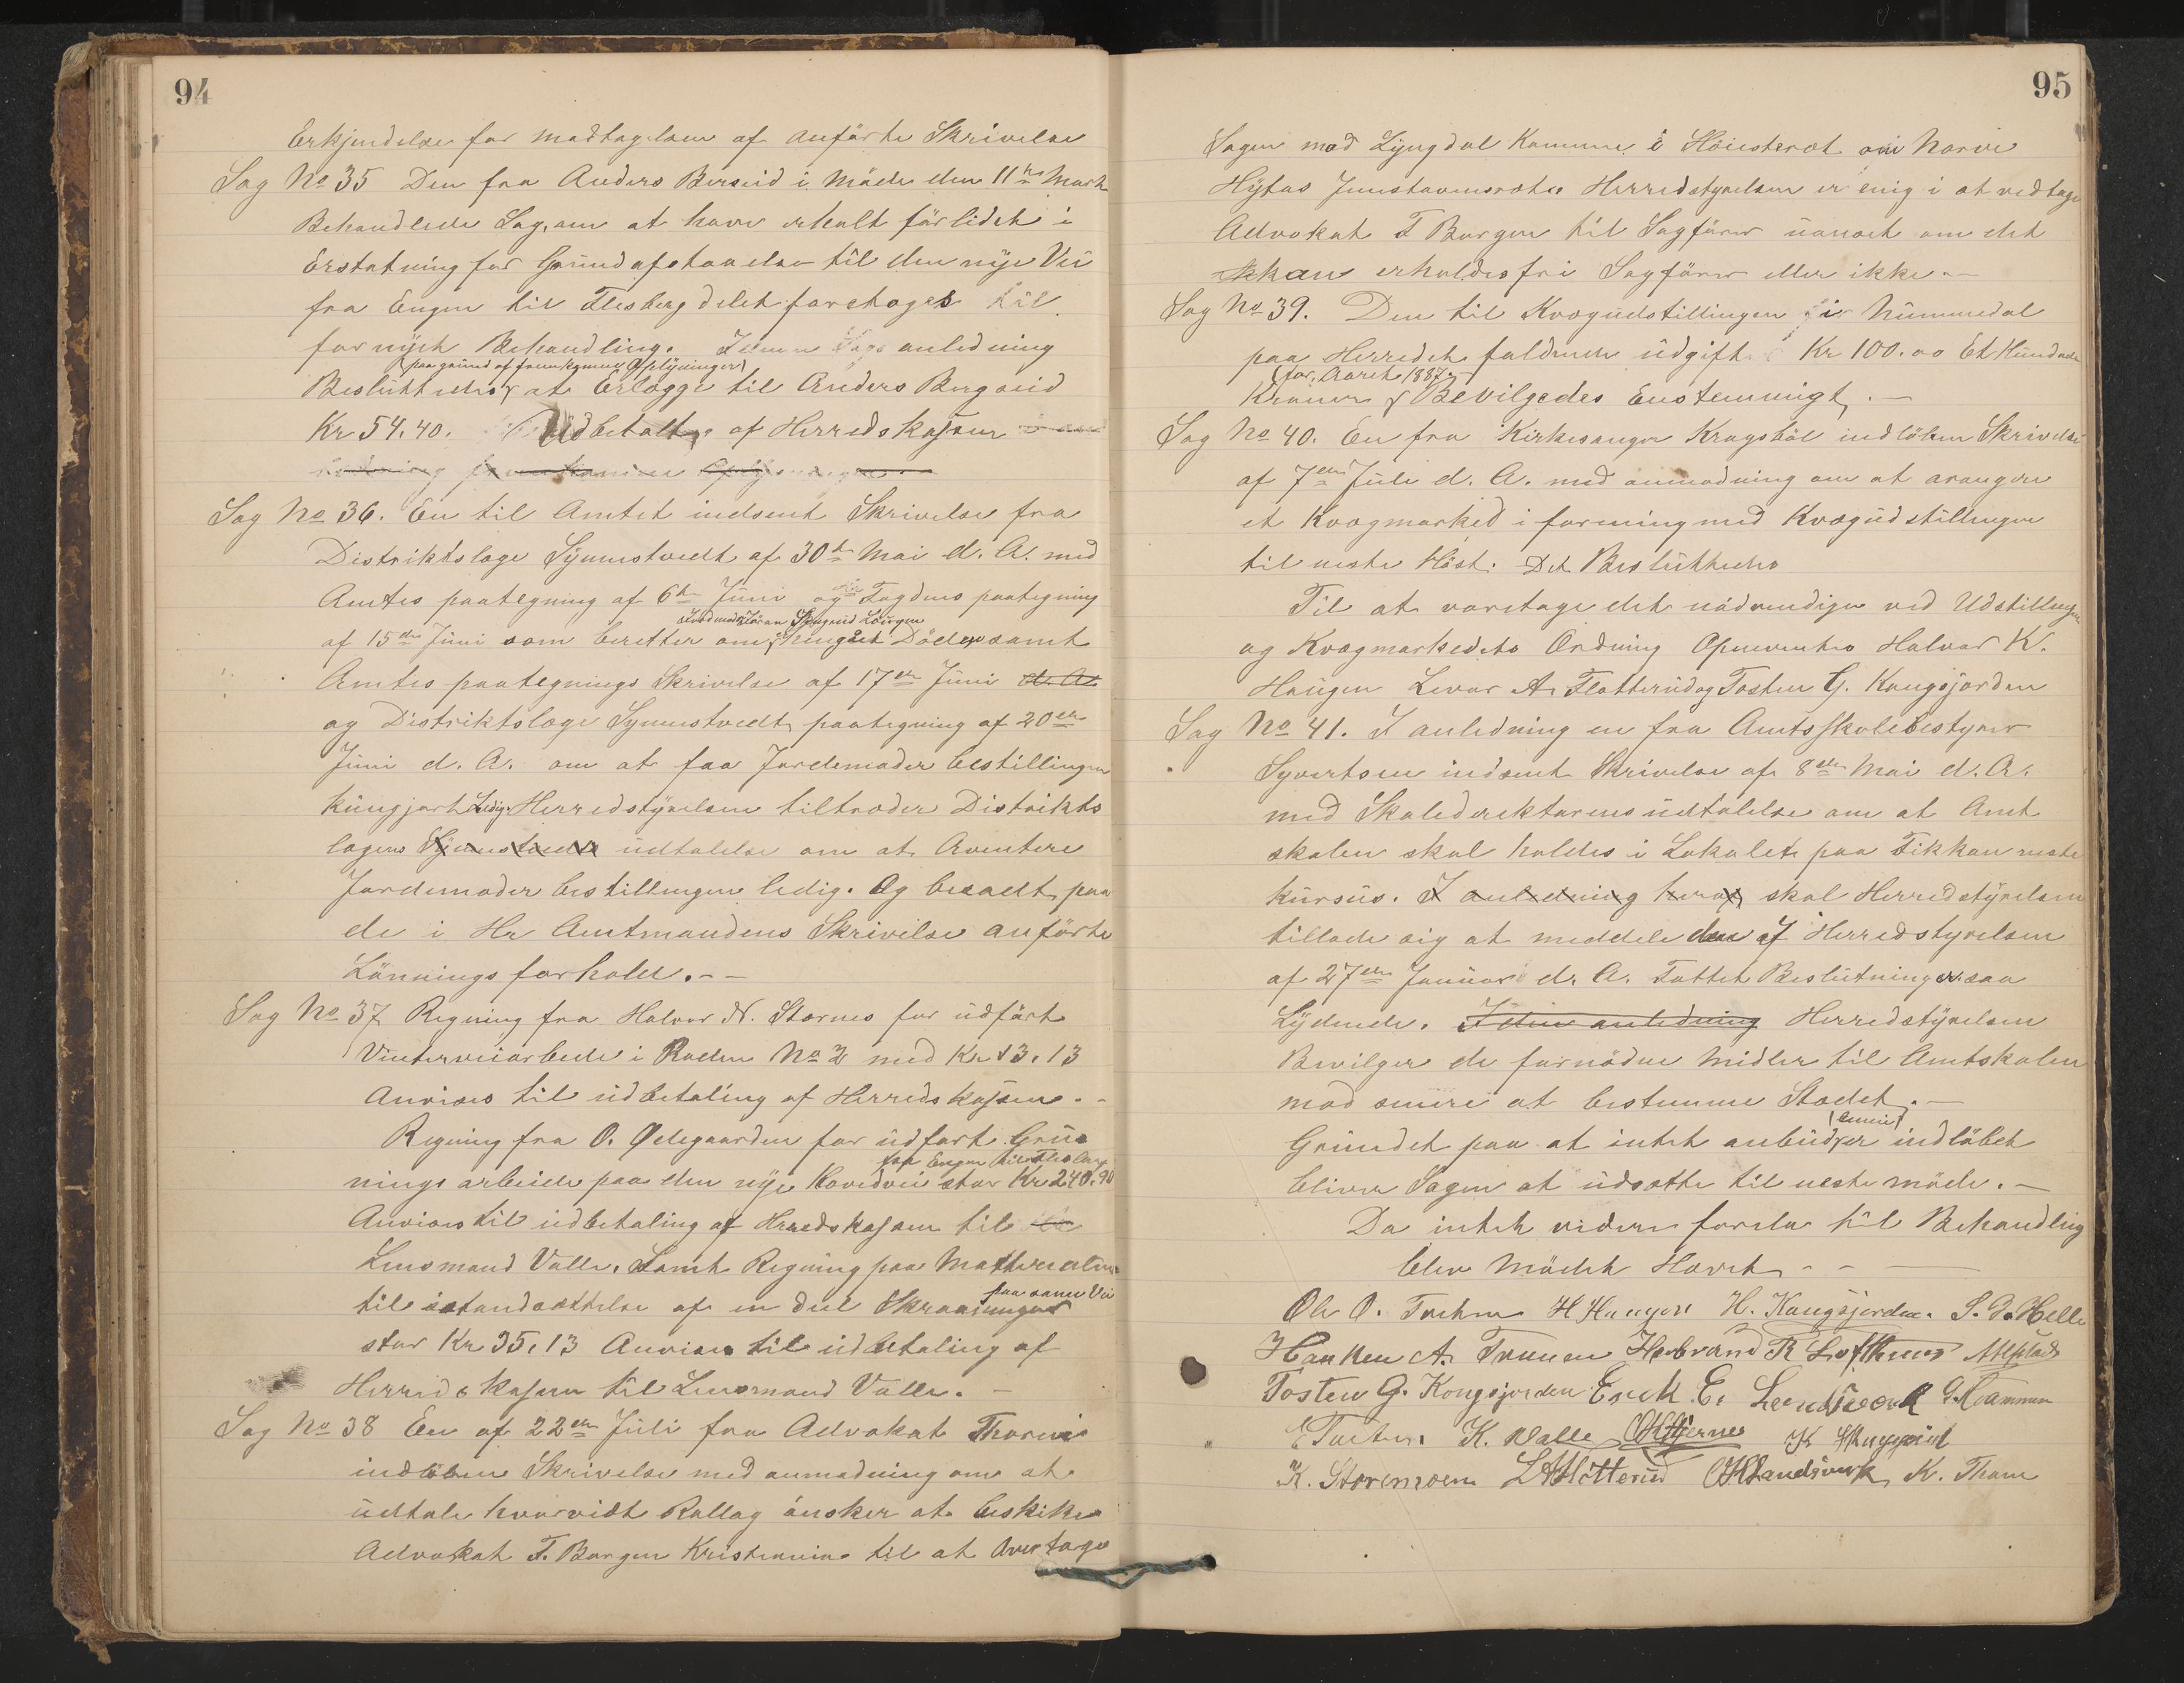 94
Erkjendelse for modtagelsen af anförte Skrivelse
Sag No 35 Den fra Anders Berseid i Möde den 11te Marts
Behandlede Sag, om at have erholt för lidet i
Erstatning for Grundafstaaelse til den nye Vei
fra Engen til Flesberg delet foretages til
fornyet Behandling. I denne Sags anledning
(paa grund af fremkomne Oplysninger)
Besluttedes at Erlægge til Anders Bergseid
Kr 54.40. Udbetalt af Herredskassen
Sag No 36. En til Amtet indsent Skrivelse fra
Distriktslæge Synnestvedt af 30te Mai d. A. med
Amtes paategning af 6te Juni og Fogdens paategning
Jordmoder Göran Skuggeid Lourgen
af 15de Juni som beretter om Döde samt
Amtes paategnings Skrivelse af 17de Juni d. A.
og Distriktslæge Synnestvedt paategning af 20de
Juni d. A. om at faa Jordemoder bestillingen
kungjort Ledig. Herredstyrelsen tiltræder Distrikts
lægens Synnestvedt udtalelse om at Avertere
Jordemoder bestillingen ledig. Og besadt paa
de i Hr Amtmandens Skrivelse anförte
Lönnings forhold. --
Sag No 37 Regning fra Halvor N. Stærnes for udfört
Vinterveiarbeide i Roden No 2 med Kr 13.13
Anvises til udbetaling af Herredskassen. -
Regning fra O. Ødegaarden for udfört Grus
fra Engen til Flesberg
nings arbeide paa den nye Hovedvei stor Kr 240.90
Anvises til udbetaling af Herredskassen til
Lensmand Valle. Samt Regning paa Matterialer
paa samme Vei
til istandsættelse af en deel Skraaninger
stor Kr 35.13 Anvises til udbetaling af
Herredskassen til Lensmand Valle. -
Sag No 38 En af 22de Juli fra Advokat Thorne
indlöben Skrivelse med anmodning om at
udtale hvorvidt Rollag önsker at beskikke
Advokat F. Borgen Kristiania til at overtage
95
Sagen mod Lyngdal Komune i Höiesteret om Narve
Hytas Herredstyrelsen er enig i at vedtage
Advokat F Borgen til Sagförer uanset om det
kan erholdes fri Sagförer eller ikke. -
Sag No 39. Den til Kvægudstillingen i Nummedal
paa Herredet faldende udgift Kr 100.00 Et Hundrede
(for Aaret 1887.
Kroner Bevilgedes Enstemmigt. -
Sag No 40. En fra Kirkesanger Kragsböl indlöben Skrivelse
af 7de Juli d. A. med anmodning om at arangere
et Kvægmarked i forening med Kvægudstillingen
til neste Höst. Det Besluttedes
Til at varetage det nödvendige ved Udstillingen
og Kvægmarkedets Ordning Opnevntes Halvor K.
Haugen Levor A. Flatterud og Tosten G. Kongsjorden
Sag No 41. I anledning en fra Amtsskolebestyrer
Syvertsen indsent Skrivelse af 8de Mai d. A.
med Skoledirektørens udtalelse om at Amt
skolen skal holdes i Lokalet paa Fikkan neste
kursus. I anledning heraf skal Herredstyrelsen
tillade sig at meddele den af Herredstyrelsen
af 27de Januar d. A. Fattet Beslutning er saa
Lydende. I den anledning Herredstyrelsen
Bevilger de fornödne Midler til Amtskolen
mod senere at bestemme Stedet. -
Grundet paa at intet anbud er indlöbet
bliver Sagen at udsætte til neste möde. -
Da intet videre forela til Behandling
blev Mödet Hævet - -
Ole O. Traaen H Haugen H. Kongsjorden. S. G. Helle
Haaken A. Traaen Herbrand R Lofthuus
Tosten G. Kongsjorden Enck E. Landsverk G. Kammen
E Traaen K. Valle K Skuggeid
K. Storemoen L A Flatterud Landsverk K. Thom